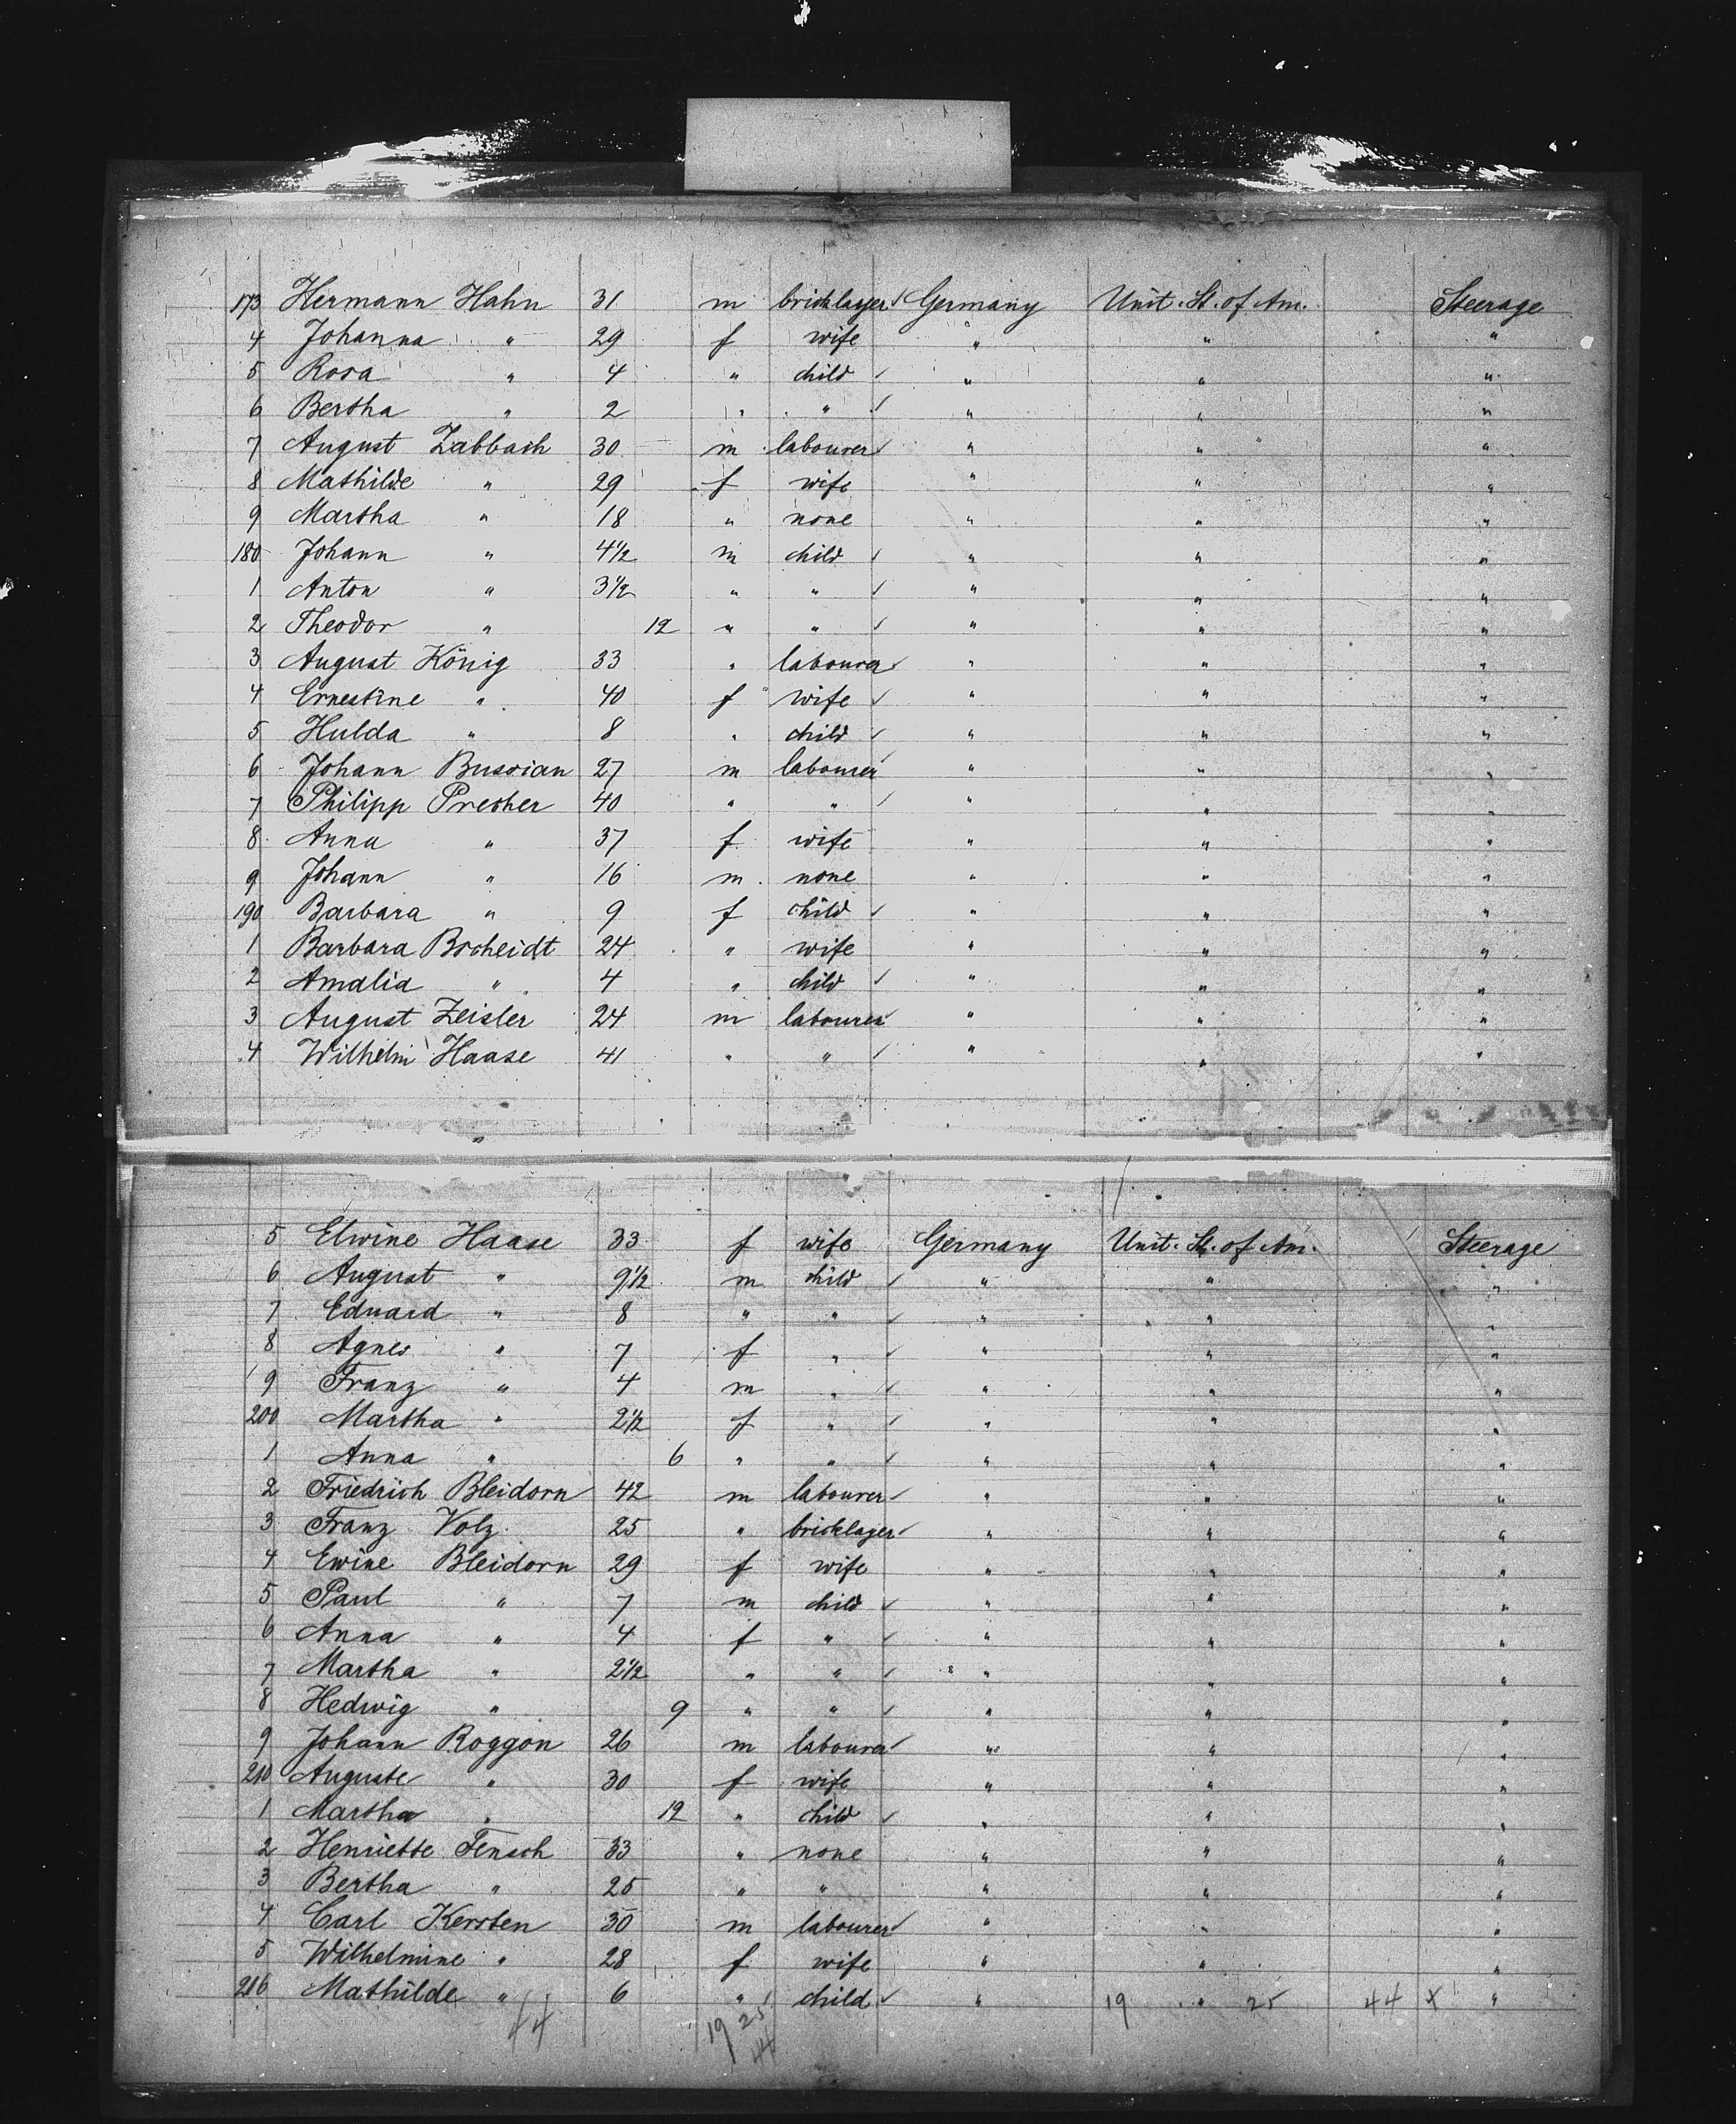 173 Hermann Hahn 31 m bricklayer Germany Unit. St. of Am. Steerage
4 Johanna " 29 f wife " " "
5 Rosa " 4 " child " " "
6 Bertha " 2 " " " " "
7 August Zabbach 30 m labourer " " "
8 Mathilde " 29 f wife " " "
9 Martha " 18 " none " " "
180 Johann " 4½ m child " " "
1 Anton " 3½ " " " " "
2 Theodor " 12 " " " " "
3 August König 33 " labourer " " "
4 Ernestine " 40 f wife " " "
5 Hulda " 8 " child " " "
6 Johann 27 m labourer " " "
7 Philipp Precher 40 " " " " "
8 Anna " 37 f wife " " "
9 Johann " 16 m none " " "
190 Barbara " 9 f child " " "
1 Barbara Bscheidt 24 " wife " " "
2 Amalia " 4 " child " " "
3 August Zeisler 24 m labourer " " "
4 Wilhelm Haase 41 " " " " "
5 Elwine Haase 33 f wife Germany Unit. St. of Am. Steerage
6 August " 9½ m child " " "
7 Eduard " 8 " " " " "
8 Agnes " 7 f " " " "
9 Franz " 4 m " " " "
200 Martha " 2½ f " " " "
1 Anna " 6 " " " " "
2 Friedrich Bleidorn 42 m labourer " " "
3 Franz Volz 25 " bricklayer " " "
4 Ewine Bleidorn 29 f wife " " "
5 Paul " 7 m child " " "
6 Anna " 4 f " " " "
7 Martha " 2½ " " " " "
8 Hedwig " 9 " " " " "
9 Johann Roggon 26 m labourer " " "
210 Auguste " 30 f wife " " "
1 Martha " 12 " child " " "
2 Henriette Tensch 33 " none " " "
3 Bertha " 25 " " " " "
4 Carl Kersten 30 m labourer " " "
5 Wilhelmine " 28 f wife " " "
216 Mathilde " 6 " child " 19 " 25 44 x "
44 19 25
44